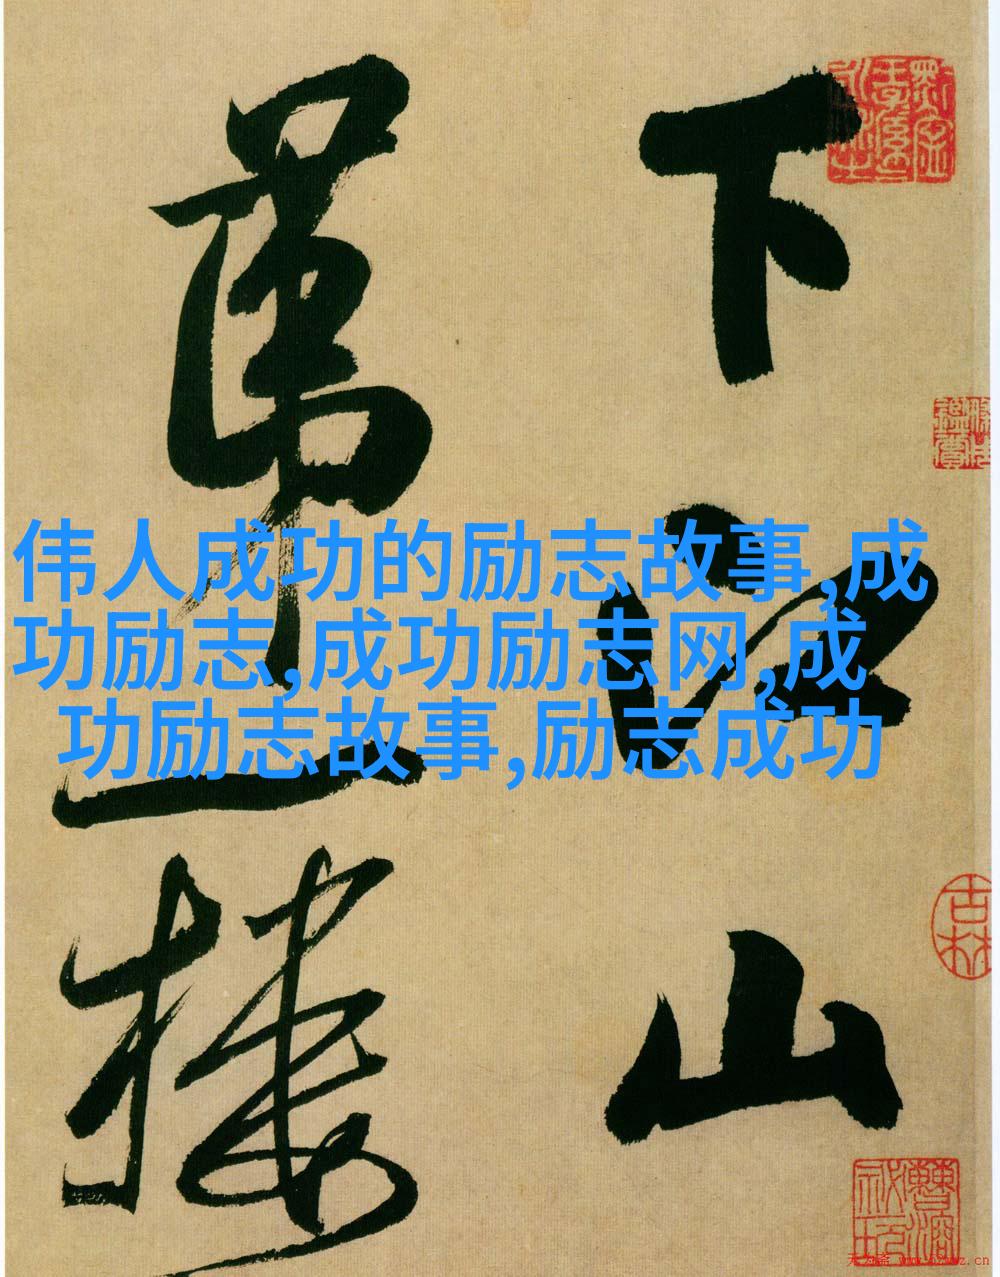 下江山
第一楼
伟人成功的励志故事,成
功励志,成功励志网,成
功励志故事,励志成功